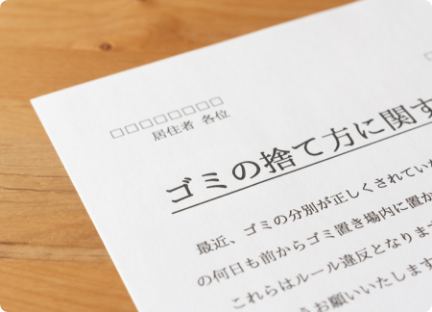 □□□□□□□□
居住者 各位
ゴミの捨て方に関す
最近、ゴミの分別が正しくされてい
の何日も前からゴミ置き場内に置か
これらはルール違反となります
うお願いいたします